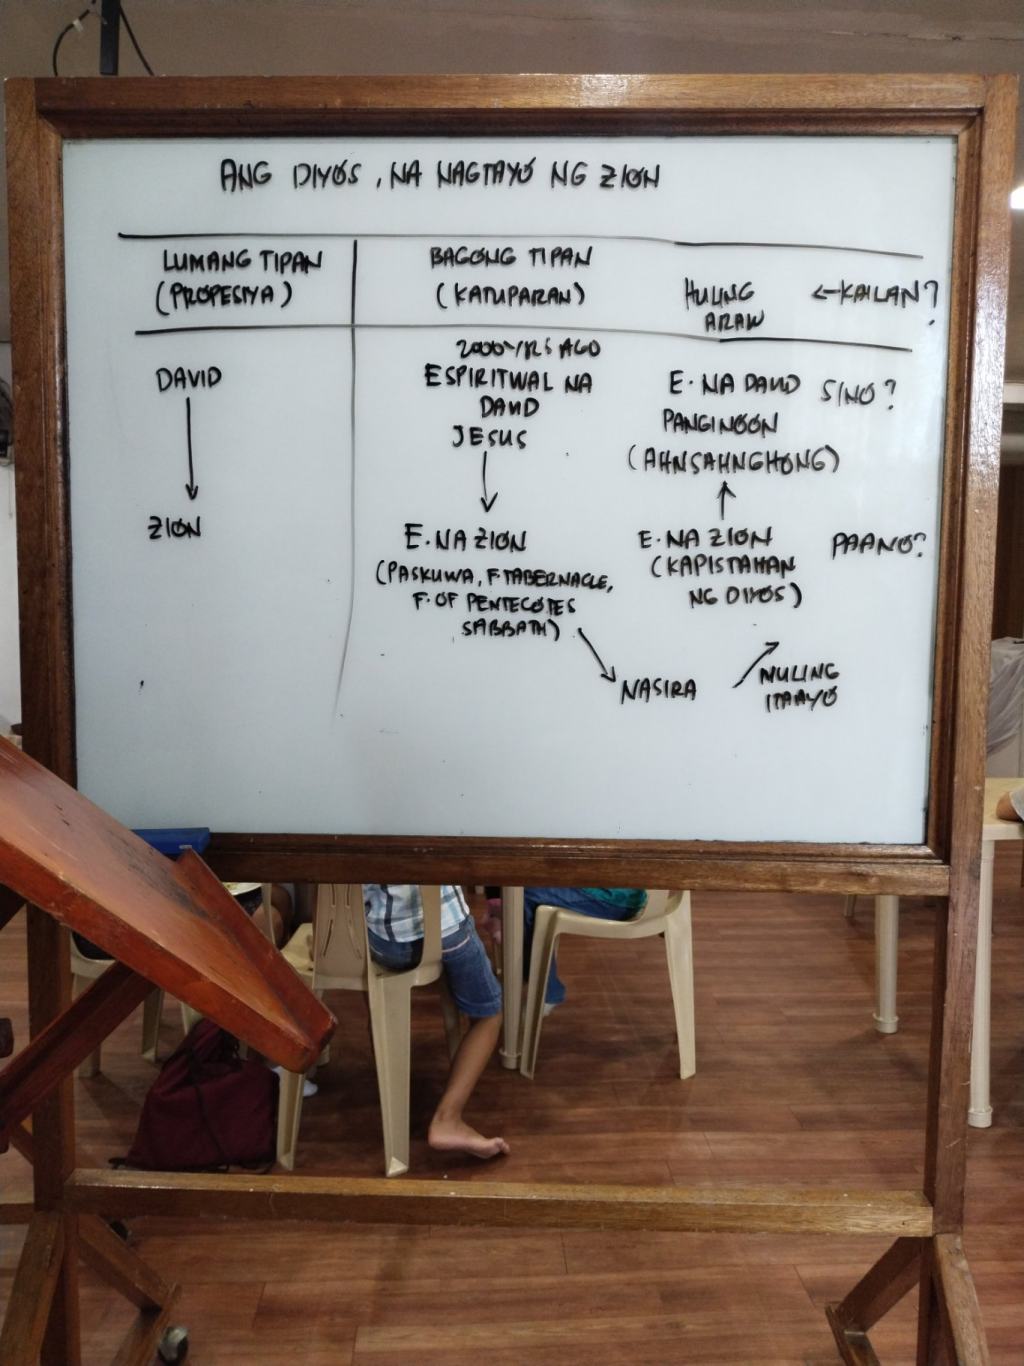 ANG DIYOS, NA NAGTAYO NG ZION
LUMANG TIPAN
(PROPESIYA)
BAGONG TIPAN
(KATUPARAN)
HULING
ARAW
←KAILAN?
DAVID
ZION
2000 YRS AGO
ESPIRITWAL NA
DAVID
JESUS
E. NA ZION
(PASKUWA, F. TABERNACLE,
F. OF PENTECOTES
SABBATH)
NASIRA
MULING
ITAAYO
E. NA DAVID
PANGINOON
(AHNSAHNGHONG)
E. NA ZION
(KAPISTAHAN
NG DIYOS)
SINO?
PAANO?